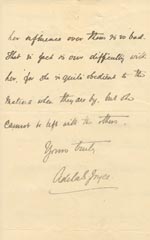 her influence over them is so bad.
That in fact is our difficulty with
her, for she is quite obedient to the
Matron when they are by, but she
cannot be left with the others.
Yours truly,
Adelah Joyce